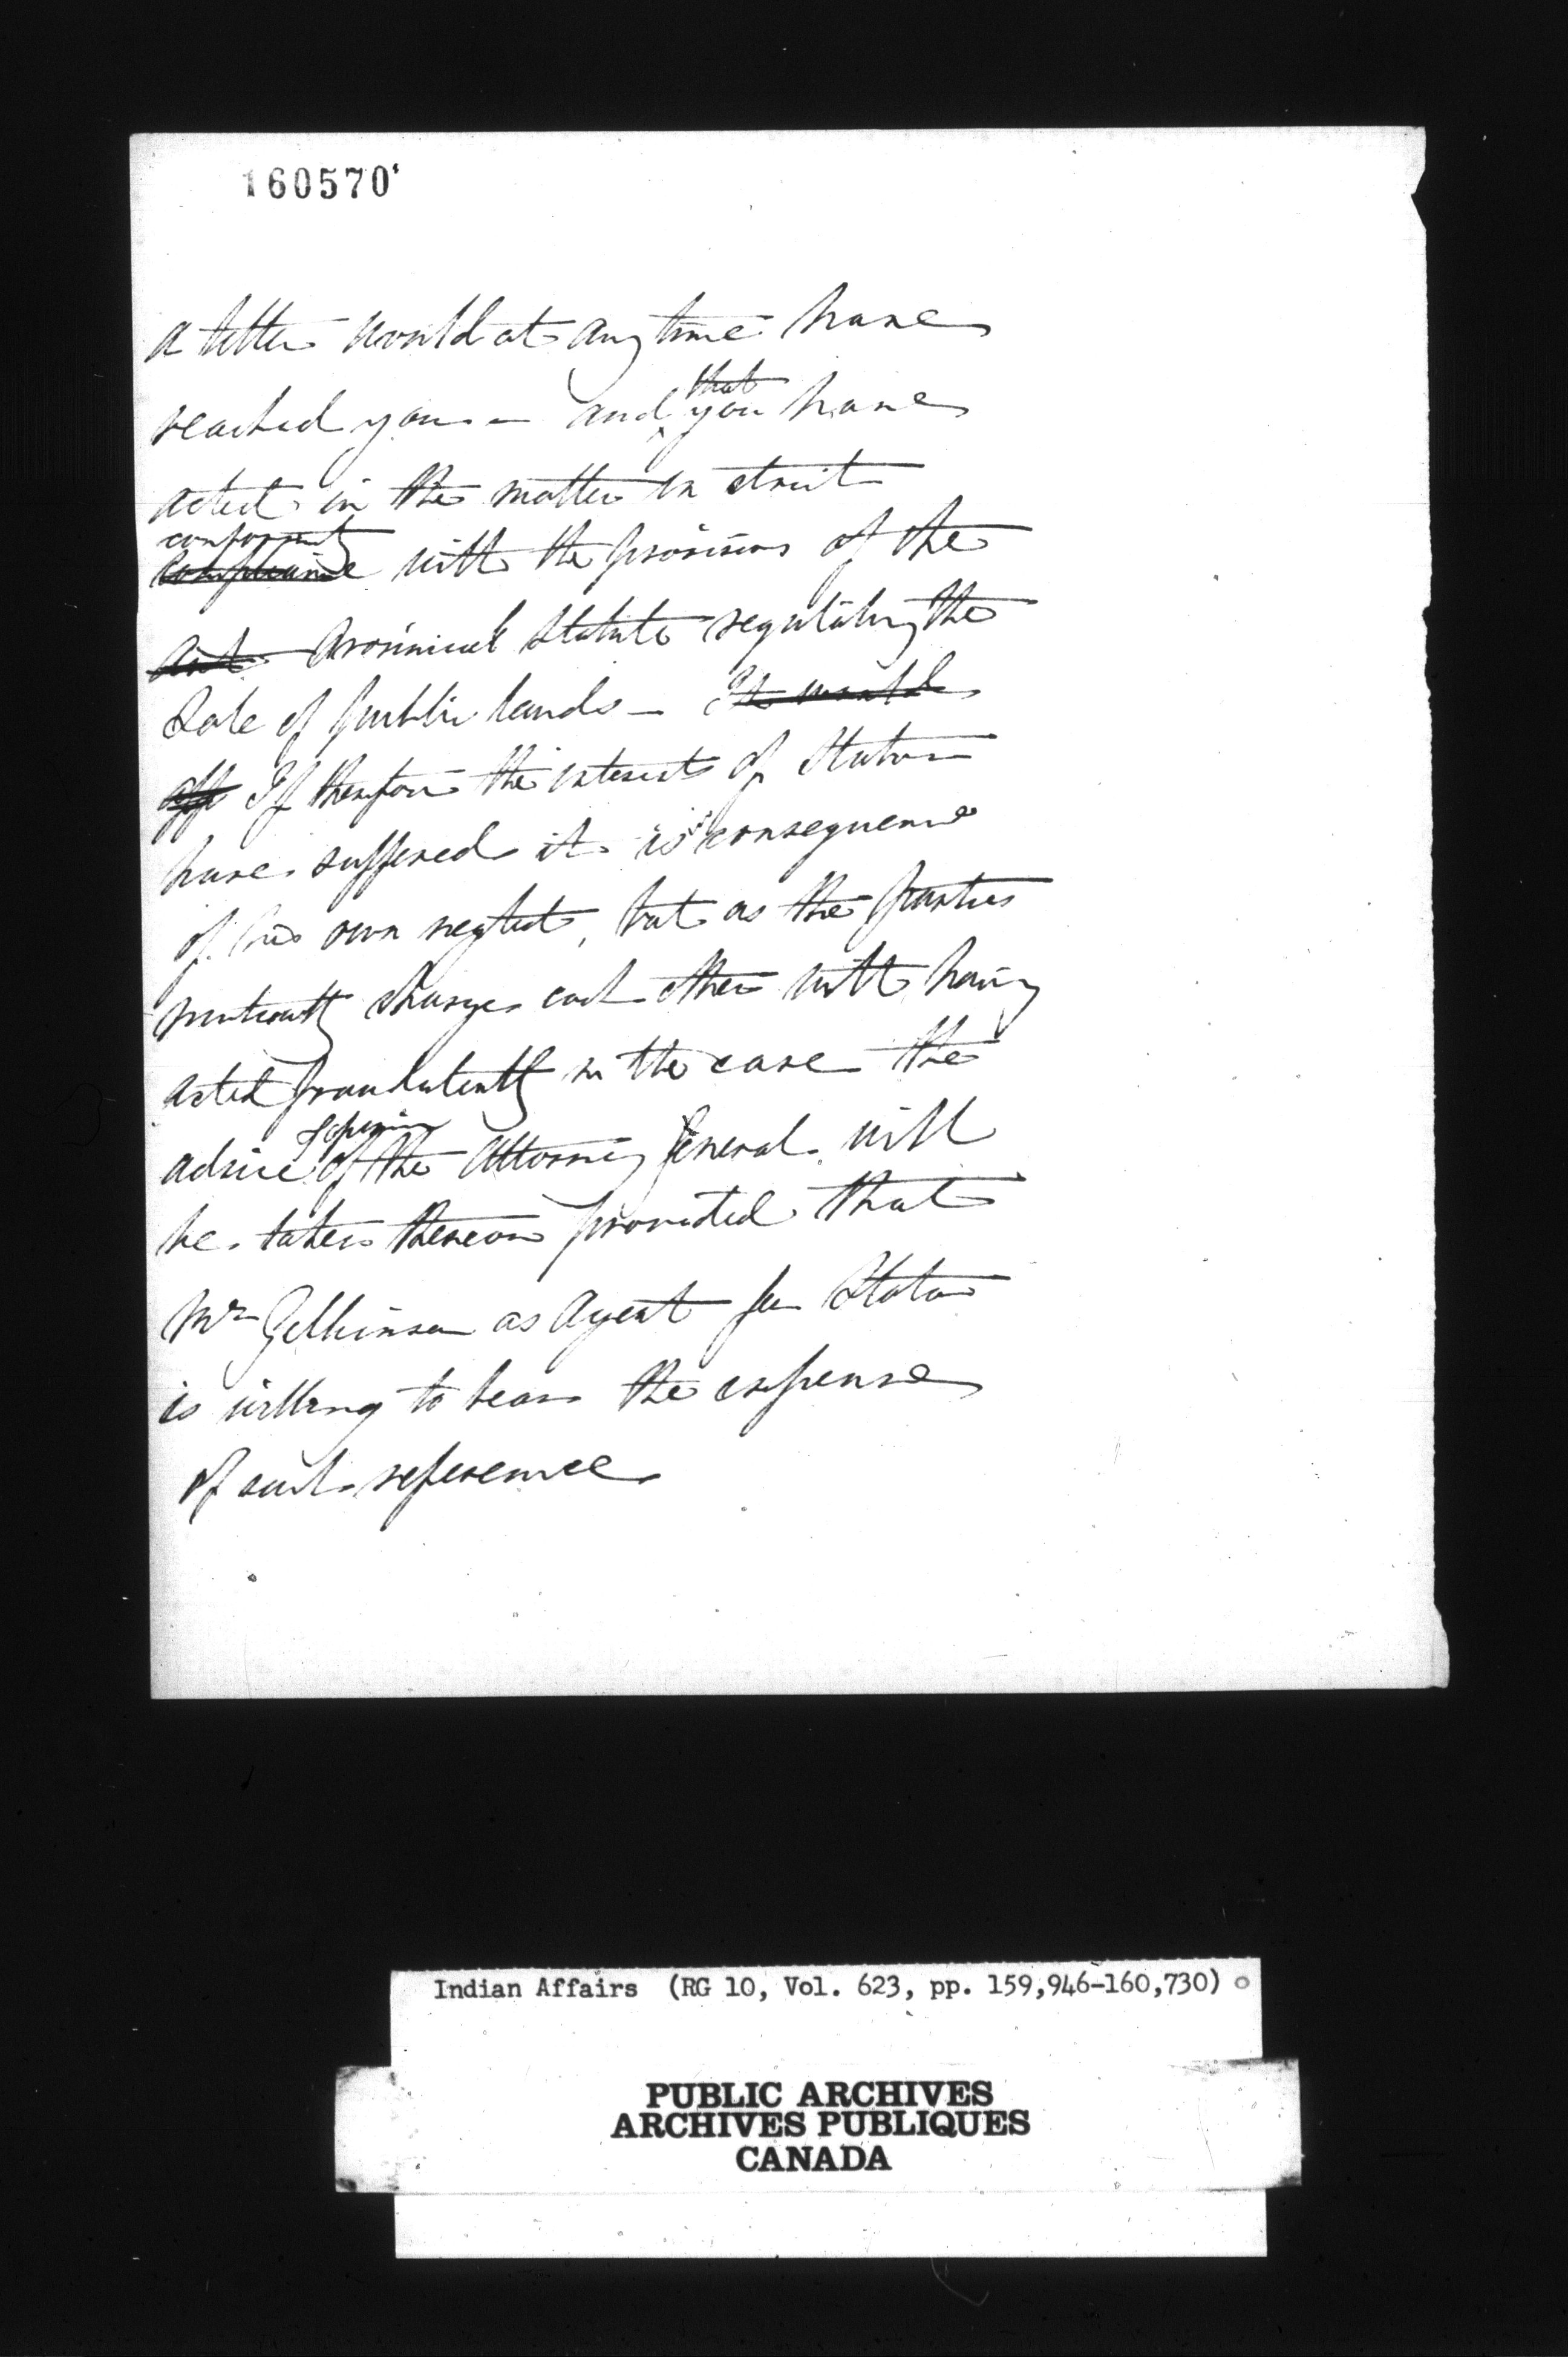 160570
a letter would at any time have
reached you — and that you have
acted in the matter in strict
conformity
compliance with the provisions of the
Act Provincial Statute regulating the
Sale of public lands — It would
app If therefore the interests of Staton
have suffered it is in consequence
of his own neglect, but as the parties
mutually charge each other with having
acted fraudulently in the case the
advice & opinion of the Attorney General will
be taken thereon provided that
Mr Gilkinson as Agent for Staton
is willing to bear the expense
of such reference
Indian Affairs (RG 10, Vol. 623, pp. 159,946-160,730)
PUBLIC ARCHIVES
ARCHIVES PUBLIQUES
CANADA